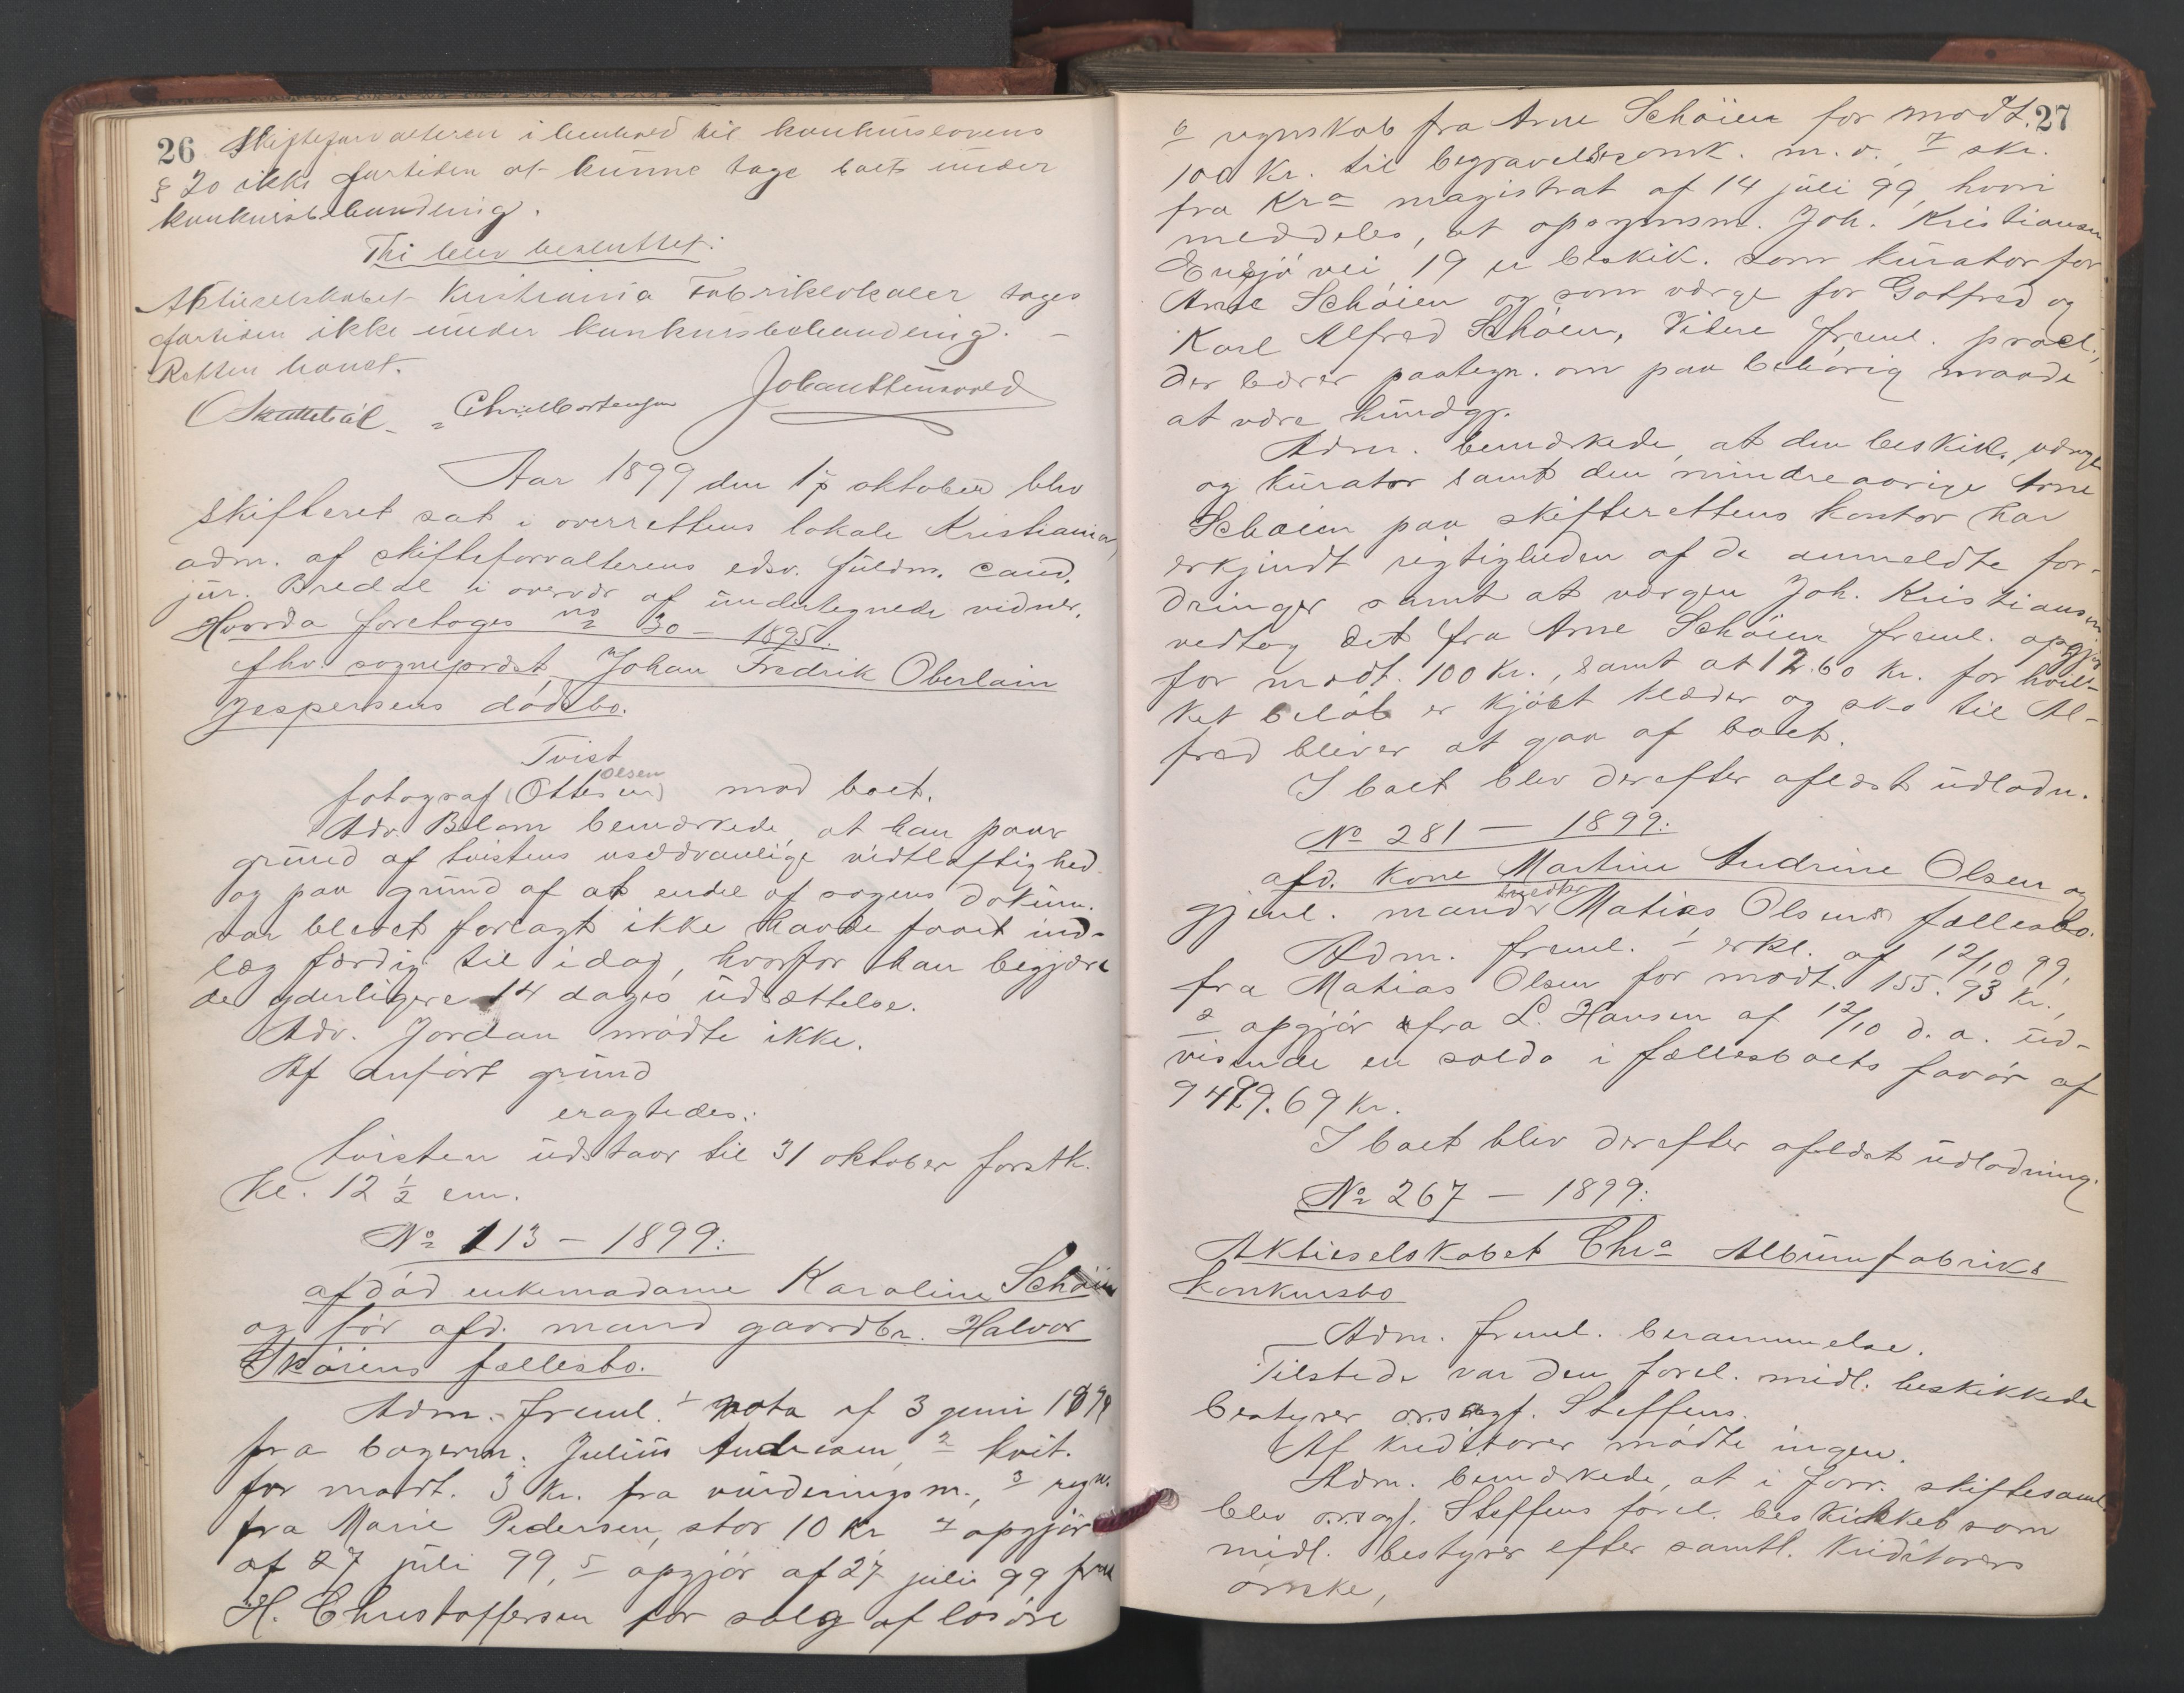 26
Skifteforvalteren i henhold til konkurslovens
§ 20 ikke fortiden at kunne tage boet under
konkursbehandling.
Thi blev besluttet:
Aktieselskabet Kristiania Fabriklokaler tages
fortiden ikke under konkursbehandling. –
Retten hævet.
Chr. Mortensen
Aar 1899 den 17 oktober blev
skifteret sat i overrettens lokale Kristiania,
adm. af skifteforvalterens edsv. fuldm. cand.
jur. Bredal i overvær af undertegnede vidner.
Hvorda foretoges no 30 – 1895:
fhv. sogneprest Johan Fredrik Oberlain
Jespersens dødsbo.
Tvist
Olsen
fotograf (Ottesen) mod boet.
Adv. Blom bemærkede, at han paa
grund af tvistens usædvanlige vidtløftighed
og paa grund af at endel af sagens dokum.
var blevet forlagt ikke havde faaet ind-
læg færdig til idag, hvorfor han begjære-
de yderligere 14 dages udsættelse.
Adv. Jordan mødte ikke.
Af anført grund
eragtedes:
tvisten udstaar til 31 oktober førstk.
kl. 12 1/2 em.
No 113 – 1899:
afdød enkemadame Karoline Schøien
og før afd. mand gaardbr. Halvor
Skøiens fællesbo.
Adm. freml. 1 nota af 3 juni 1899
fra bagerm. Julius Andresen, 2 kvit.
for modt. 3 kr. fra vurderingsm., 3 regn.
fra Marie Pedersen, stor 10 kr 4 opgjør
af 27 juli 99, 5 opgjør af 27 juli 99 fra
H. Christoffersen for salg af løsøre
27
6 regnskab fra Arne Schøien for modt.
100 kr. til begravelsesomk. m. v., 7 skr.
fra Kra magistrat af 14 juli 99, hvori
meddeles, at opsynsm. Joh. Kristiansen
Ensjø vei 19 er beskik. som kurator for
Arne Schøien og som værge for Gotfred og
Karl Alfred Schøien, Videre freml. procl.,
der bærer paategn. om paa behørig maade
at være kundgj.
Adm. bemærkede, at den beskik. værge
og kurator samt den mindreaarige Arne
Schøien paa skifterettens kontor har
erkjendt rigtigheden af de anmeldte for-
dringer samt at værgen Joh. Kristiansen
vedtog det fra Arne Schøien freml. opgjør
for modt. 100 kr., samt at 12.60 kr. for hvil-
ket beløb er kjøbt klæder og sko til Al-
fred bliver at gaa af boet.
I boet blev derefter aflæst udlodn.
No 281 – 1899:
afd. kone Martine Andrine Olsen og
gjenl. mand Matias Olsens fællesbo.
Adm. freml. 1 erkl. af 12/10 99,
fra Matias Olsen for modt. 155.93 kr.,
2 opgjør fra L. Hansen af 12/10 d. a. ud-
visende en saldo i fællesboets favør af
kr.
I boet blev derefter aflæst udlodning.
No 267 – 1899:
Aktieselskabet Chra Albumfabriks
konkursbo
Adm. freml. berammelse.
Tilstede var den forel. midl. beskikkede
bestyrer o.r.sagf. Steffens.
Af kreditorer mødte ingen.
Adm. bemærkede, at i forr. skiftesaml.
blev o.r.sagf. Steffens forel. beskikket som
midl. bestyrer efter samtl. kreditorers
ønske,